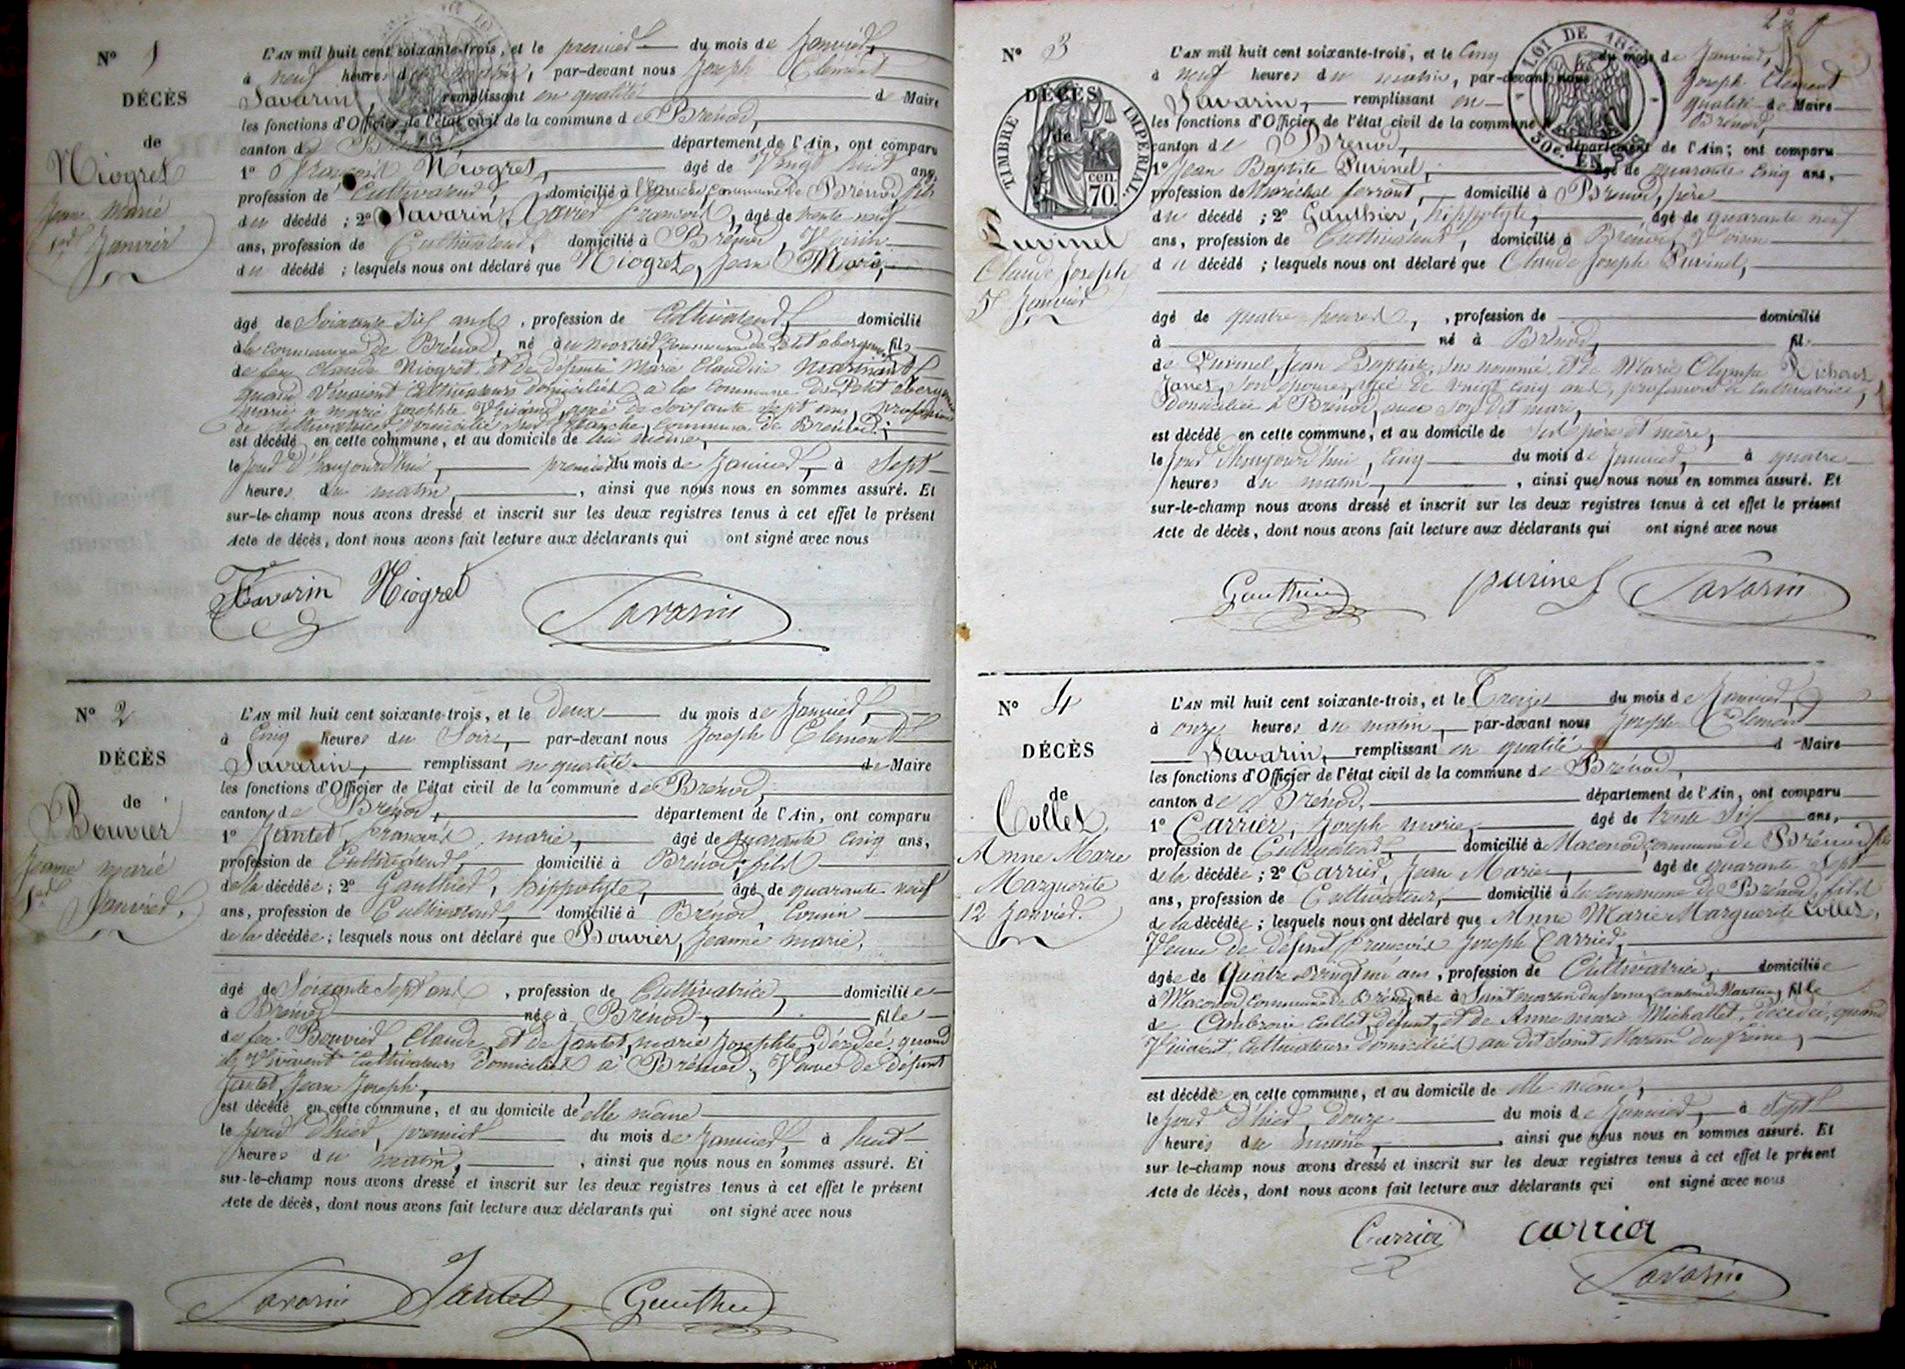 N° 1
DÉCÈS
de
Niogret
Jean Marie
1er Janvier
L'AN mil huit cent soixante-trois, et le premier du mois de Janvier,
à neuf heures du matin, par-devant nous Joseph Clément
Savarin remplissant en qualité de Maire
les fonctions d'Officier de l'état civil de la commune de Brénod,
canton de Brénod département de l'Ain, ont comparu
1° François Niogret, âgé de Vingt huit ans,
profession de Cultivateur, domicilié à l'Hauche, commune de Brénod, fils
du décédé ; 2° Savarin, Xavier François, âgé de trente neuf
ans, profession de Cultivateur, domicilié à Brénod, Voisin
du décédé ; lesquels nous ont déclaré que Niogret, Jean Marie,
âgé de Soixante dix ans, profession de Cultivateur, domicilié
à la commune de Brénod, né au commune de Petit abergement fils
de feu Claude Niogret, et de défunte Marie Claudine
quand Vivaient Cultivateurs domiciliés à la commune du Petit abergement
marié à marie Josephte âgée de soixante sept ans, profession
de Cultivatrice domiciliée commune de Brénod ;
est décédé en cette commune, et au domicile de lui même,
le jour d'haujourd'hui, premier du mois de Janvier, à Sept
heures du matin, ainsi que nous nous en sommes assuré. Et
sur-le-champ nous avons dressé et inscrit sur les deux registres tenus à cet effet le présent
Acte de décès, dont nous avons fait lecture aux déclarants qui ont signé avec nous
Favarin Niogret Savarin
N° 2
DÉCÈS
de
Bouvier
Jeanne marie
1er Janvier.
L'AN mil huit cent soixante-trois, et le deux du mois de Janvier,
à Cinq heures du Soir, par-devant nous Joseph Clément
Savarin, remplissant en qualité de Maire
les fonctions d'Officier de l'état civil de la commune de Brénod,
canton de Brénod, département de l'Ain, ont comparu
1° Jantet, François marie, âgé de quarante cinq ans,
profession de Cultivateur, domicilié à Brénod, fils
de la décédée ; 2° Gauthier, hippolyte, âgé de quarante neuf
ans, profession de Cultivateur, domicilié à Brénod, Cousin
de la décédée ; lesquels nous ont déclaré que Bouvier, Jeanne marie,
âgé de Soixante Sept ans, profession de Cultivatrice, domiciliée
à Brénod née à Brénod, fille
de feu Bouvier, Claude, et de Jantet, marie Josephte, décédée quand
ils Vivaient Cultivateurs domiciliés à Brénod, Veuve de défunt
Jantet, Jean Joseph,
est décédé en cette commune, et au domicile de elle même
le jour d'hier, premier du mois de Janvier, à huit
heures du matin, ainsi que nous nous en sommes assuré. Et
sur-le-champ nous avons dressé et inscrit sur les deux registres tenus à cet effet le présent
Acte de décès, dont nous avons fait lecture aux déclarants qui ont signé avec nous
Savarin Jantet Gauthier
N° 3
DÉCÈS
de
TIMBRE IMPÉRIAL.
cen. 70.
Puvinel
Claude Joseph
5 Janvier
LOI DE
50c. EN SUS
L'AN mil huit cent soixante-trois, et le Cinq du mois de Janvier,
à neuf heures du matin, par-devant nous Joseph Clément
Savarin, remplissant en qualité de Maire
les fonctions d'Officier de l'état civil de la commune Brénod,
canton de Brénod, département de l'Ain, ont comparu
1° Jean Baptiste Puvinel, âgé de quarante cinq ans,
profession de Maréchal ferrant, domicilié à Brénod, père
du décédé ; 2° Gauthier, hippolyte, âgé de quarante neuf
ans, profession de Cultivateur, domicilié à Brénod, Voisin
du décédé ; lesquels nous ont déclaré que Claude Joseph Puvinel,
âgé de quatre heures, profession de domicilié
à né à Brénod, fil
de Puvinel, Jean Baptiste, sus nommé, et de Marie Olympe
Janet, son épouse, âgée de vingt cinq ans, profession de Cultivatrice,
domiciliée à Brénod, avec son dit mari,
est décédé en cette commune, et au domicile de ses père et mère,
le jour d'haujourd'hui, Cinq du mois de Janvier, à quatre
heures du matin, ainsi que nous nous en sommes assuré. Et
sur-le-champ nous avons dressé et inscrit sur les deux registres tenus à cet effet le présent
Acte de décès, dont nous avons fait lecture aux déclarants qui ont signé avec nous
Gauthier puvinel Savarin
N° 4
DÉCÈS
de
Collet
Anne Marie
Marguerite
12 Janvier.
L'AN mil huit cent soixante-trois, et le Treize du mois de Janvier,
à onze heures du matin, par-devant nous Joseph Clément
Savarin, remplissant en qualité d Maire
les fonctions d'Officier de l'état civil de la commune de Brénod,
canton de Brénod, département de l'Ain, ont comparu
1° Carrier, Joseph marie, âgé de trente Six ans,
profession de Cultivateur, domicilié à Maconod, commune de Brénod, fils
de la décédée ; 2° Carrier, Jean Marie, âgé de quarante Sept
ans, profession de Cultivateur, domicilié à la commune de Brénod, fils
de la décédée ; lesquels nous ont déclaré que Anne Marie Marguerite Collet,
Veuve de défunt François Joseph Carrier,
âgée de Quatre Vingt un ans, profession de Cultivatrice, domiciliée
à Maconod, commune de Brénod, née à Saint martin du frene, canton de Nantua, fille
de Ambroise Collet, défunt, et de Anne marie Michallet, décédée, quand
Vivaient, Cultivateurs domiciliés au dit Saint Martin du frêne,
est décédée en cette commune, et au domicile de elle même,
le jour d'hier, douze du mois de Janvier, à Sept
heures du matin, ainsi que nous nous en sommes assuré. Et
sur le-champ nous avons dressé et inscrit sur les deux registres tenus à cet effet le présent
Acte de décès, dont nous avons fait lecture aux déclarants qui ont signé avec nous
Carrier carrier
Savarin